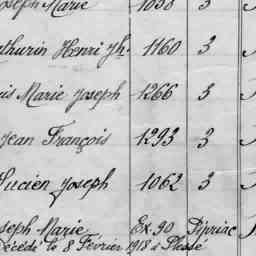 oseph Marie 1058
athurin Henri Jh. 1160 3
is Marie Joseph 1266 3
Jean François 1293 3
Lucien Joseph 1062 3
oseph Marie Ex. 90 Dipriac
Décédé le 8 Février 1918 à Plessé